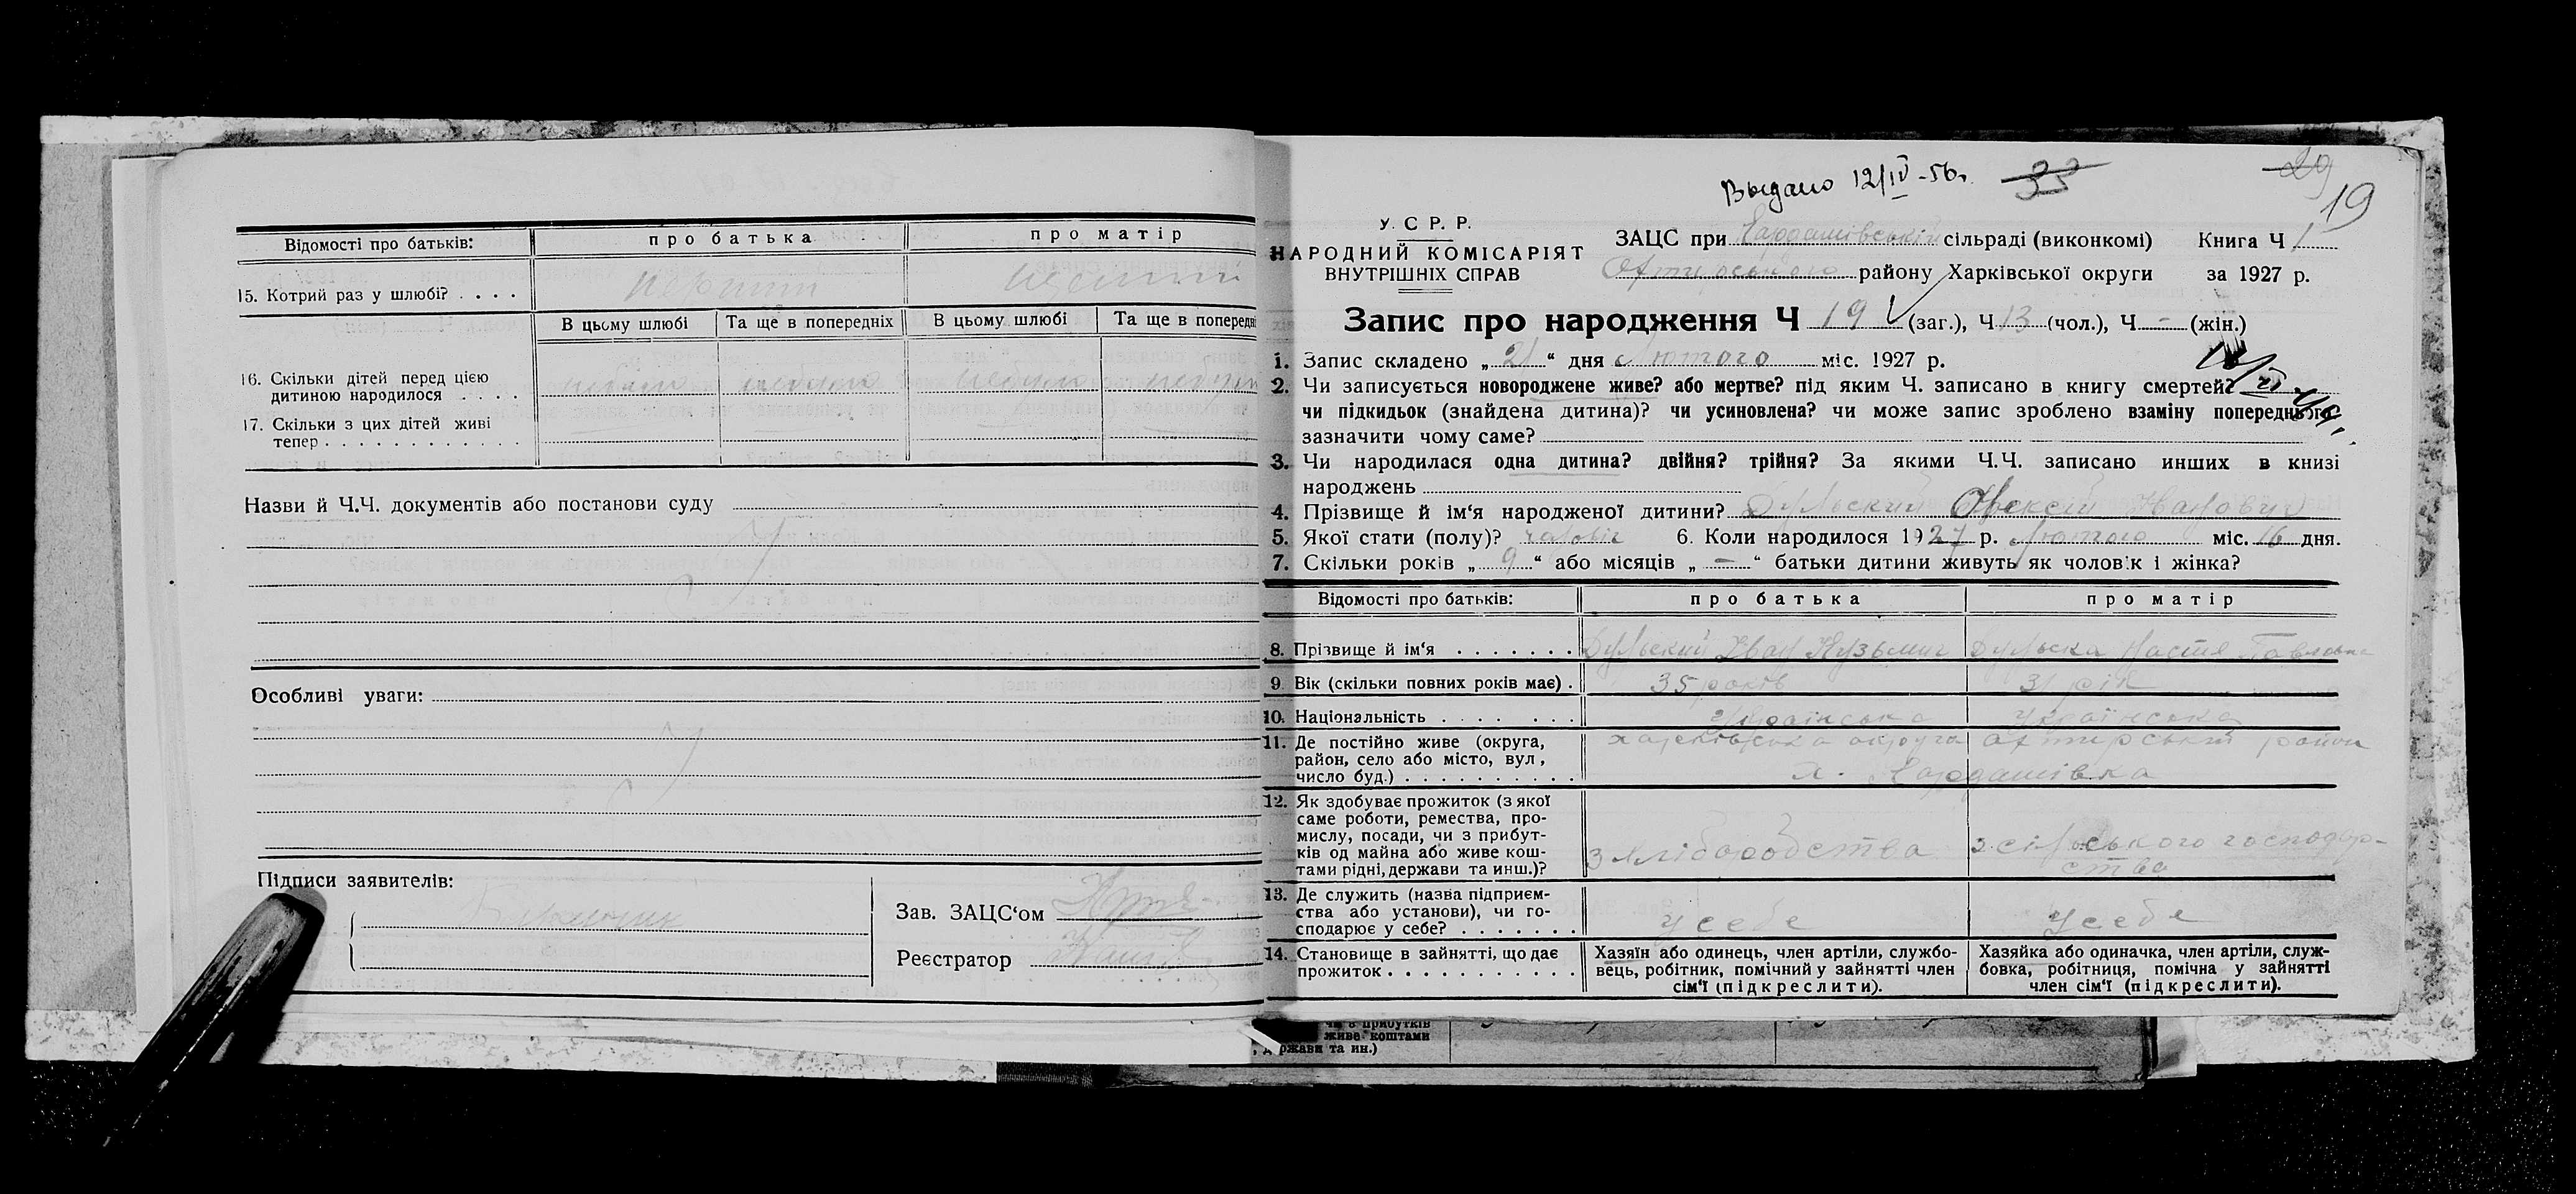 Відомості про батьків: про батька про матір
15. Котрий раз у шлюбі? . . . . перший
В цьому шлюбі Та ще в попередніх В цьому шлюбі Та ще в попередн
16. Скільки дітей перед цією
дитиною народилося . . . . небуло небуло небуло небуло
17. Скільки з цих дітей живі
тепер . . . . . . . . . . . .
Назви й Ч.Ч. документів або постанови суду
Особливі уваги:
Підписи заявителів:
Зав. ЗАЦС‘ом
Реєстратор
Выдано 12/IV-56г. 35
29
19
У. С. Р. Р.
НАРОДНИЙ КОМІСАРІЯТ
ВНУТРІШНІХ СПРАВ
ЗАЦС при сільраді (виконкомі) Книга Ч 1
району Харківської округи за 1927 р.
Запис про народження Ч 19 (заг.), Ч 13 (чол.), Ч - (жін.)
1. Запис складено „ 21 “ дня Лютого міс. 1927 р.
2. Чи записується новороджене живе? або мертве? під яким Ч. записано в книгу смертей?
чи підкидьок (знайдена дитина)? чи усиновлена? чи може запис зроблено взаміну попереднього,
зазначити чому саме?
3. Чи народилася одна дитина? двійня? трійня? За якими Ч.Ч. записано инших в книзі
народжень
4. Прізвище й ім‘я народженої дитини? Дульский Олексій Іванович
5. Якої стати (полу)? чоловіч 6. Коли народилося 1927 р. Лютого міс. 16 дня.
7. Скільки років „ 9 “ або місяців „ - “ батьки дитини живуть як чоловік і жінка?
Відомості про батьків: про батька про матір
8. Прізвище й ім‘я . . . . . . . Дульский Іван Кузьмич Дульска Настя Павловна
9. Вік (скільки повних років має) . 35 років 31 рік
10. Національність . . . . . . . Українська Українська
11. Де постійно живе (округа, Харківська округа Охтирський район
район, село або місто, вул,
число буд.) . . . . . . . . . . х.
12. Як здобуває прожиток (з якої
саме роботи, ремества, про-
мислу, посади, чи з прибут-
ків од майна або живе кош- з хліборобства з сільського господар-
тами рідні, держави та инш.)? ства
13. Де служить (назва підприєм-
ства або установи), чи го-
сподарює у себе? . . . . . . . у себе у себе
14. Становище в зайнятті, що дає
прожиток . . . . . . . . . . .
Хазяїн або одинець, член артіли, службо-
вець, робітник, помічний у зайнятті член
сім‘ї (підкреслити).
Хазяйка або одиначка, член артіли, служ-
бовка, робітниця, помічна у зайнятті
член сім‘ї (підкреслити).
живе коштами
держави та ин.)